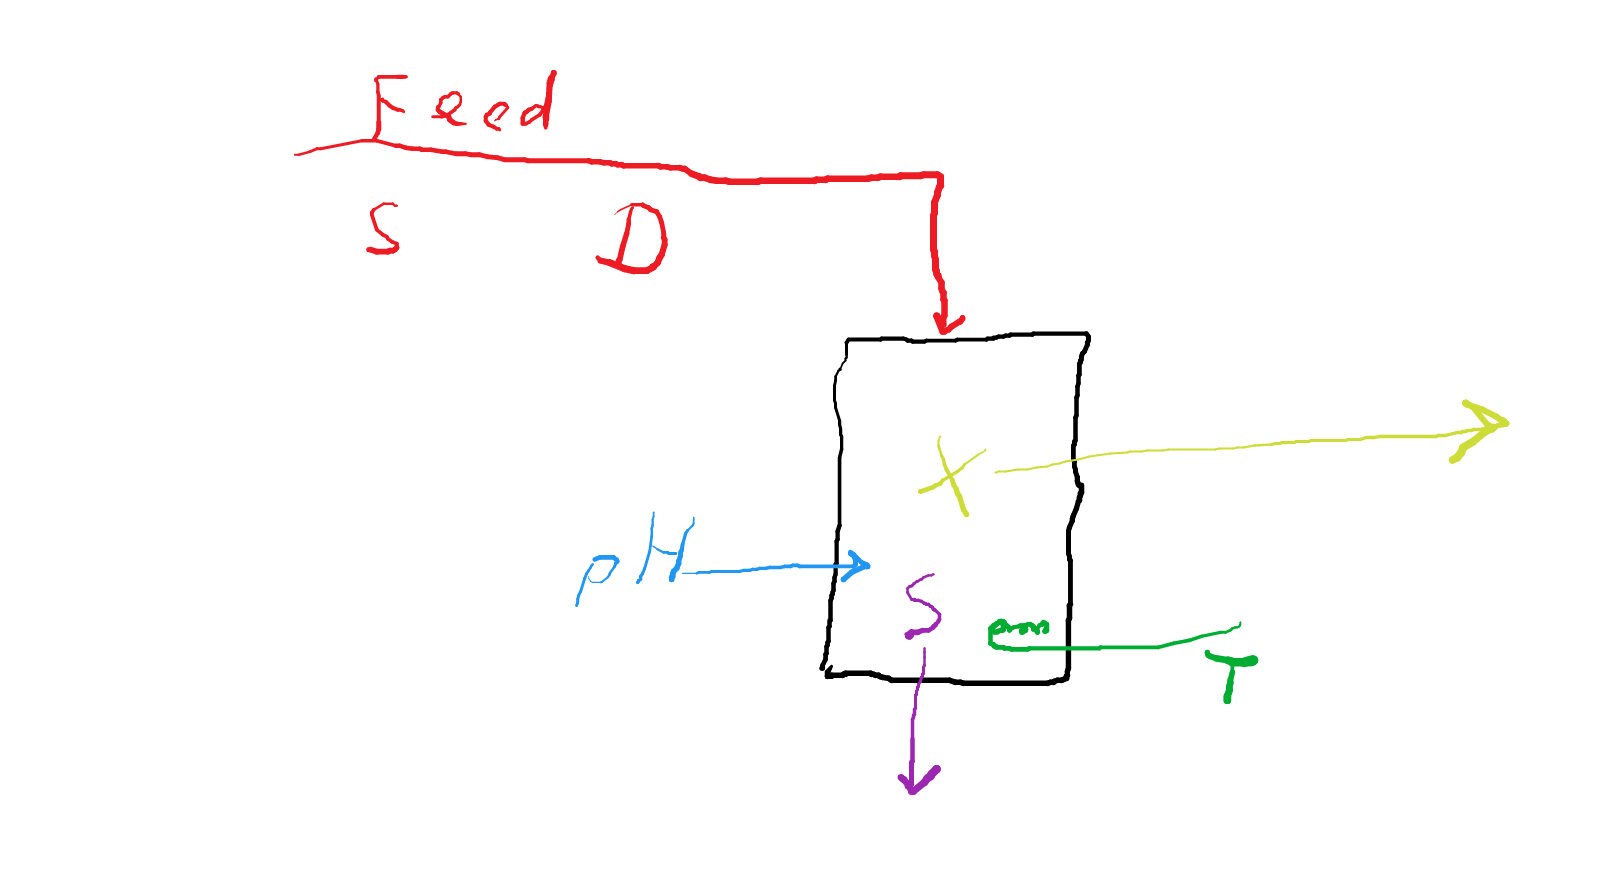 Feed
S D
X
pH
S
T